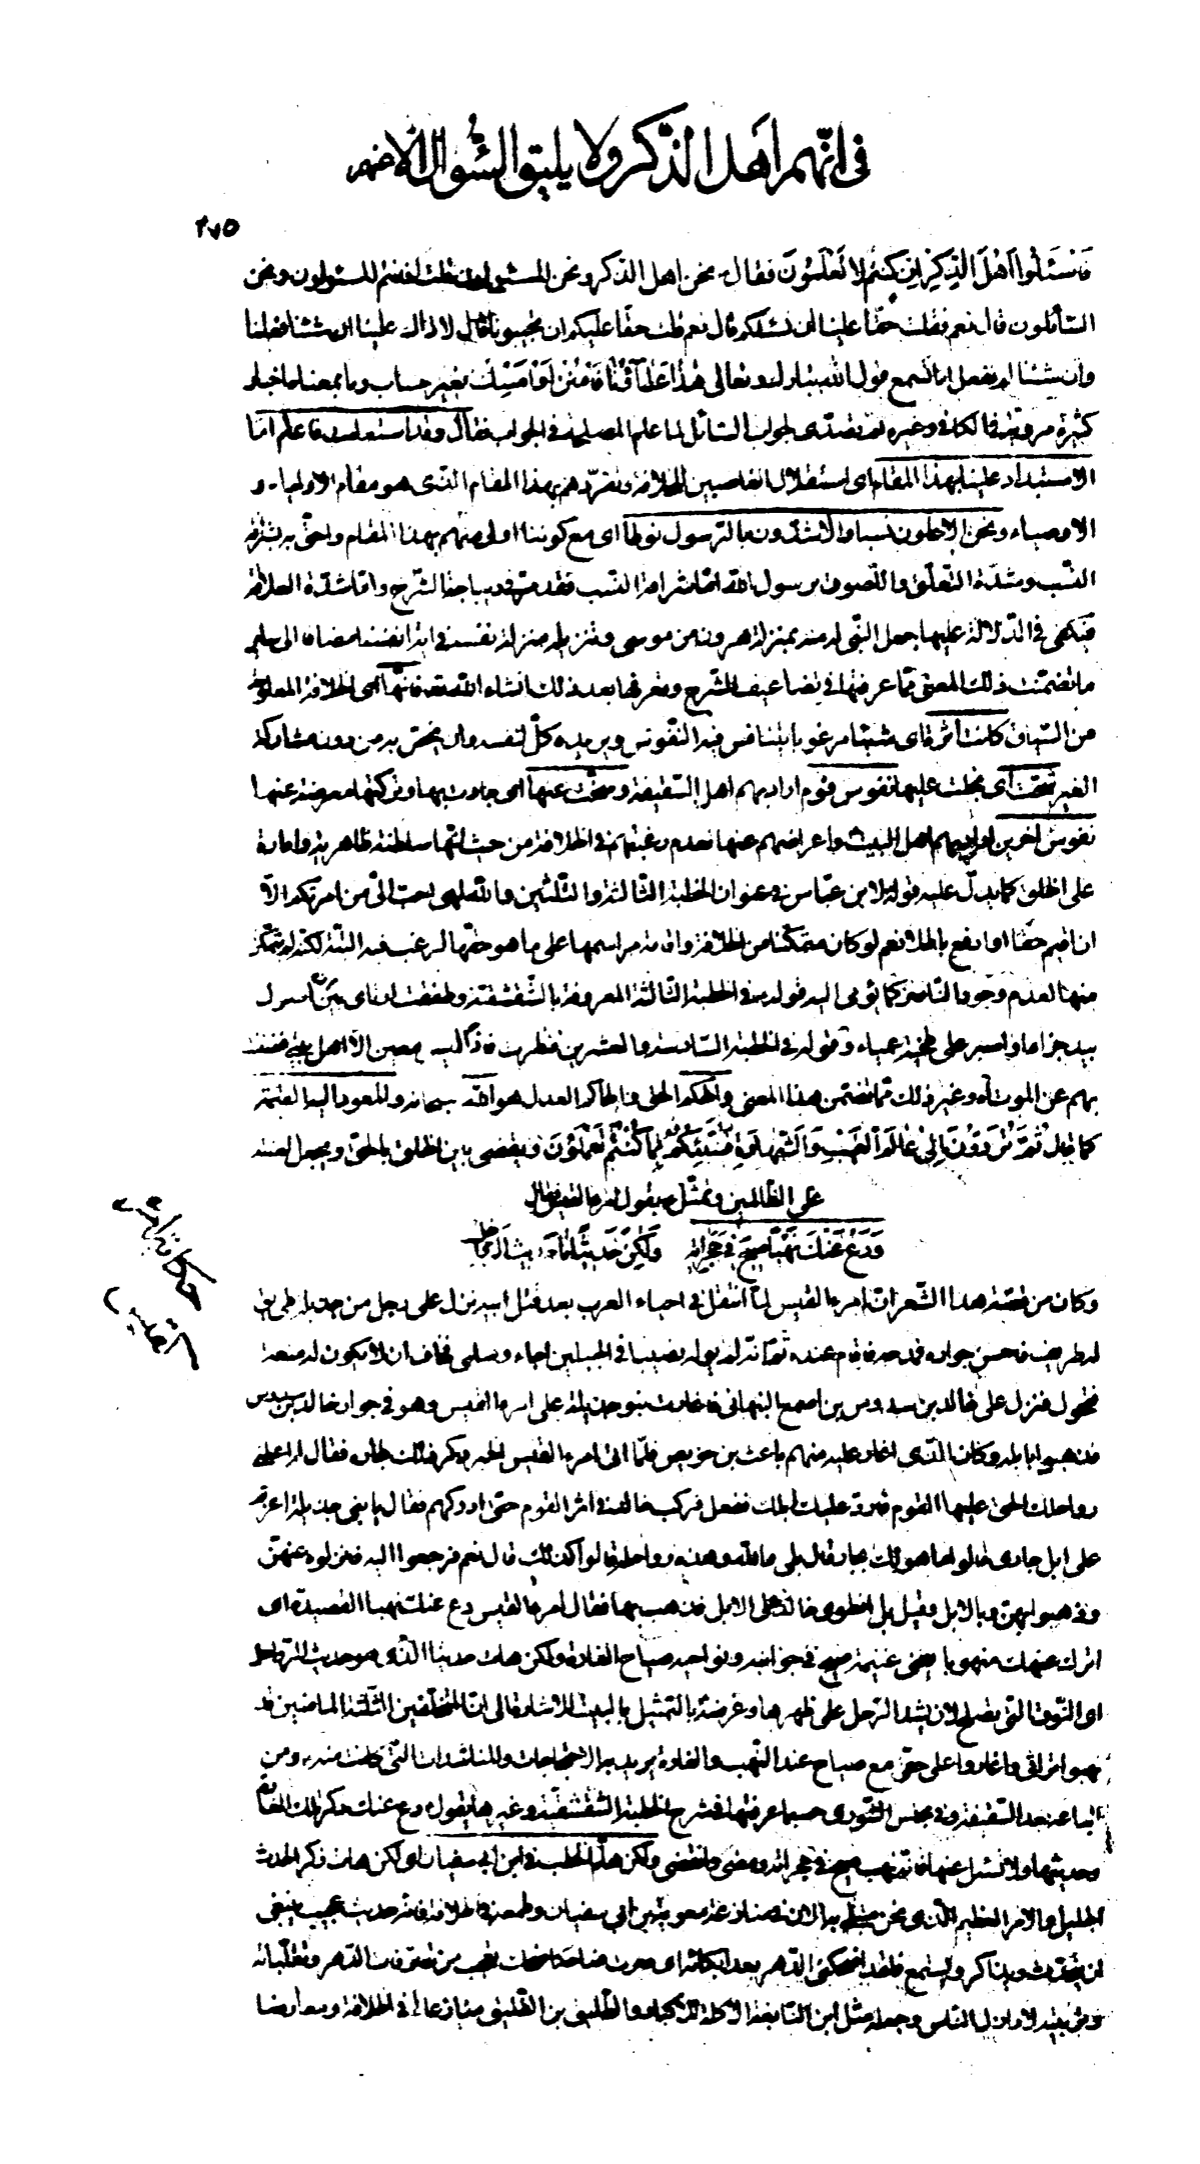 في انّهم اهل الذّكر ولا يليق السّؤال الّا عنهم
٢٧٥
فاسئلوا اهل الذّكر ان كنتم لا تعلمون فقال نحن اهل الذكر ونحن المسئولون قلت فانتم المسئولون ونحن
السّائلون قال نعم قلت حقّا علينا ان نسئلكم قال نعم قلت حقا عليكم ان تجيبونا قال لا ذاك علينا ان شئنا فعلنا
وان شئنا لم نفعل اما تسمع قول الله تبارك وتعالى هٰذا عطاؤنا فامنن او امسك بغير حساب وبمعناه اخبار
كثيرة مرويّة في الكافي وغيره ثم تصدّى لجواب السّائل لما علم المصلحة في الجواب فقال وقد استعلمت فاعلم امّا
الاستبداد علينا بهذا المقام اى استقلال الغاصبين للخلافة وتفرّدهم بهذا المقام الّذى هو مقام الاولياء و
الاوصياء ونحن الاعلون نسبا والاشدّون بالرّسول نوطا اى مع كوننا اولى منهم بهذا المقام واحقّ به بشرف
النّسب وشدّة التعلّق واللّصوق برسول الله امّا شرافة النّسب فقد مرّ في ديباجة الشّرح وامّا شدّة العلاقة
فيكفى في الدّلالة عليها جعل النّبي له منه بمنزلة هرون من موسى وتنزيله منزلة نفسه في اية انفسنا مضافا الى ساير
ما تضمّنت ذلك المعنى ممّا عرفتها في تضاعيف الشّرح وتعرفها بعد ذلك انشاء الله تعالى فانّها اى الخلافة المعلومة
من السّياق كانت اثرة اى شيئا مرغوبا يتنافس فيه النّفوس ويريده كلّ لنفسه وان يختصّ به من دون مشاركة
الغير شحّت اى بخلت عليها نفوس قوم اراد بهم اهل السّقيفة وسخت عنها اى جادت بها وتركتها معرضة عنها
نفوس اخرين اراد بهم اهل البيت واعراضهم عنها لعدم رغبتهم في الخلافة من حيث انّها سلطنة ظاهرية وامارة
على الخلق كما يدلّ عليه قوله لابن عبّاس في عنوان الخطبة الثّالثة والثّلثين والله لهى احبّ الىّ من امرتكم الّا
ان اقيم حقّا او ادفع باطلا نعم لو كان متمكّنا من الخلافة واقامة مراسمها على ما هو حقّها لرغب فيه البتّة لكنّه لم يتمكّن
منها لعدم وجود النّاصر كما يؤمى اليه قوله في الخطبة الثّالثة المعروفة بالشّقشقيّة وطفقت ارتاى بين ان اصول
بيد جزاء او اصبر على طخية عمياء وقوله في الخطبة السّادسة والعشرين فنظرت فاذا ليس معين الّا اهل بيتى فضننت
بهم عن الموت اه وغير ذلك ممّا تضمّن هذا المعنى والحكم الحق والحاكم العدل هو الله سبحانه والمعود اليه القيمة
كما قال ثمّ تردّون الى عالم الغيب والشّهادة فينبّئكم بما كنتم تعملون ويقضى بين الخلق بالحقّ ويجعل لعنته
على الظّالمين وتمثّل بقول امرء القيس فقال
ودع عنك نهبا صيح في حجراته ولكن حديثا ما حديث الرّواحل
حكاية امرء
القيس
وكان من قصّة هذا الشّعر انّ امرء القيس لمّا انتقل في احياء العرب بعد قتل ابيه نزل على رجل من جديلة طيّ يق
له طريف فاحسن جواره فمدحه فاقام عنده ثمّ انّه لم يوله نصيبا في الجبلين اجاء وسلمى فخاف ان لا يكون له منعة
فتحوّل فنزل على خالد بن سدوس بن اصمع النبهانى فاغارت بنو جديلة على امرء القيس وهو في جوار خالد بن سدوس
فذهبوا بابله وكان الّذى اغار عليه منهم باعث بن حويص فلمّا اتى امرء القيس الخبر ذكر ذلك لجاره فقال له اعطنى
رواحلك الحق عليها القوم فاردّ عليك ابلك ففعل فركب خالد في اثر القوم حتّى ادركهم فقال يا بنى جديلة اغرتم
على ابل جارى قالوا ما هو لك بجار قال بلى والله وهذه رواحله قالوا كذلك قال نعم فرجعوا اليه فانزلوه عنهنّ
وذهبوا بهنّ وبالابل وقيل بل انطوى خالد على الابل فذهب بها فقال امرء القيس دع عنك نهبا القصيدة اى
اترك عنك منهوبا يعنى غنيمة صيح في جوانبه ونواحيه صياح الغارة ولكن هات حديثا الّذى هو حديث الرّواحل
اى النّوق الّتى تصلح لان يشدّ الرّحل على ظهرها وغرضه بالتمثيل بالبيت الاشارة الى انّ المتخلّفين الثّلثة الماضين قد
نهبوا تراثى واغاروا على حقّى مع صياح عند النّهب والغارة يريد به الاحتجاجات والمناشدات الّتى كانت منه ومن
اتباعه بعد السّقيفة وفي مجلس الشّورى حسبما عرفتها في شرح الخطبة الشّقشقيّة وغيرها يقول دع عنك ذكر تلك الغارة
وحديثها ولا تسئل عنها فانّه نهب صيح في حجراته ومضى وانقضى ولكن هلمّ الخطب في ابن ابي سفيان اى ولكن هات ذكر الحدث
الجليل والامر العظيم الّذى نحن مبتلى به الان من منازعة معوية بن ابي سفيان وطمعه في الخلافة فانّه حديث عجيب ينبغى
ان يتحدّث ويذاكر ويستمع فلقد اضحكنى الدّهر بعد ابكائه اى صرت ضاحكا ضحك تعجّب من تصرّفات الدّهر وتقلّباته
وتربيته لاراذل النّاس وجعله مثل ابن النّابغة الاكلة الاكباد والطّليق بن الطّليق منازعا لى في الخلافة ومعارضا